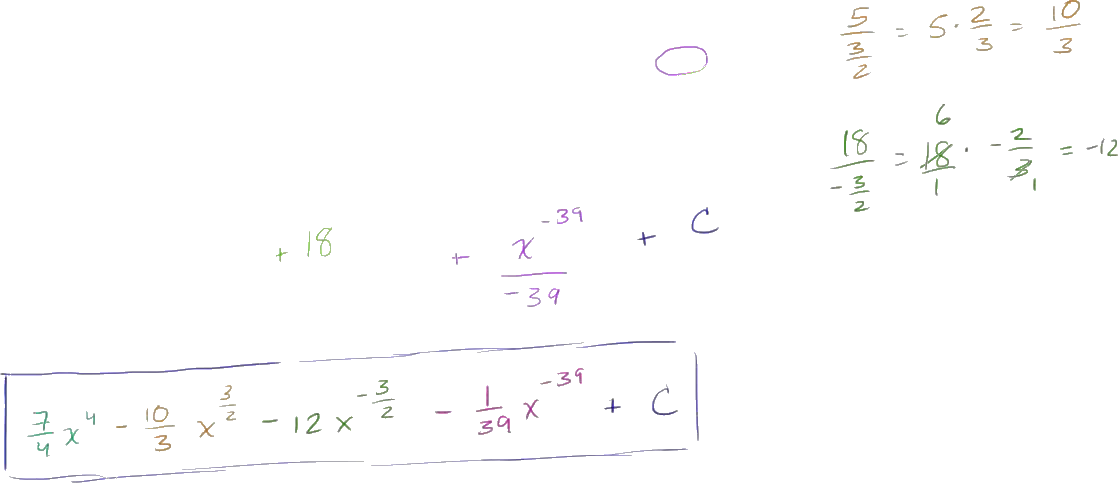 5/(3/2) = 5 · 2/3 = 10/3
18/(-3/2) = 18/1 · -2/3 = -12
6
1
+ 18 + x^-39/-39 + C
7/4 x^4 - 10/3 x^3/2 - 12x^-3/2 - 1/39 x^-39 + C